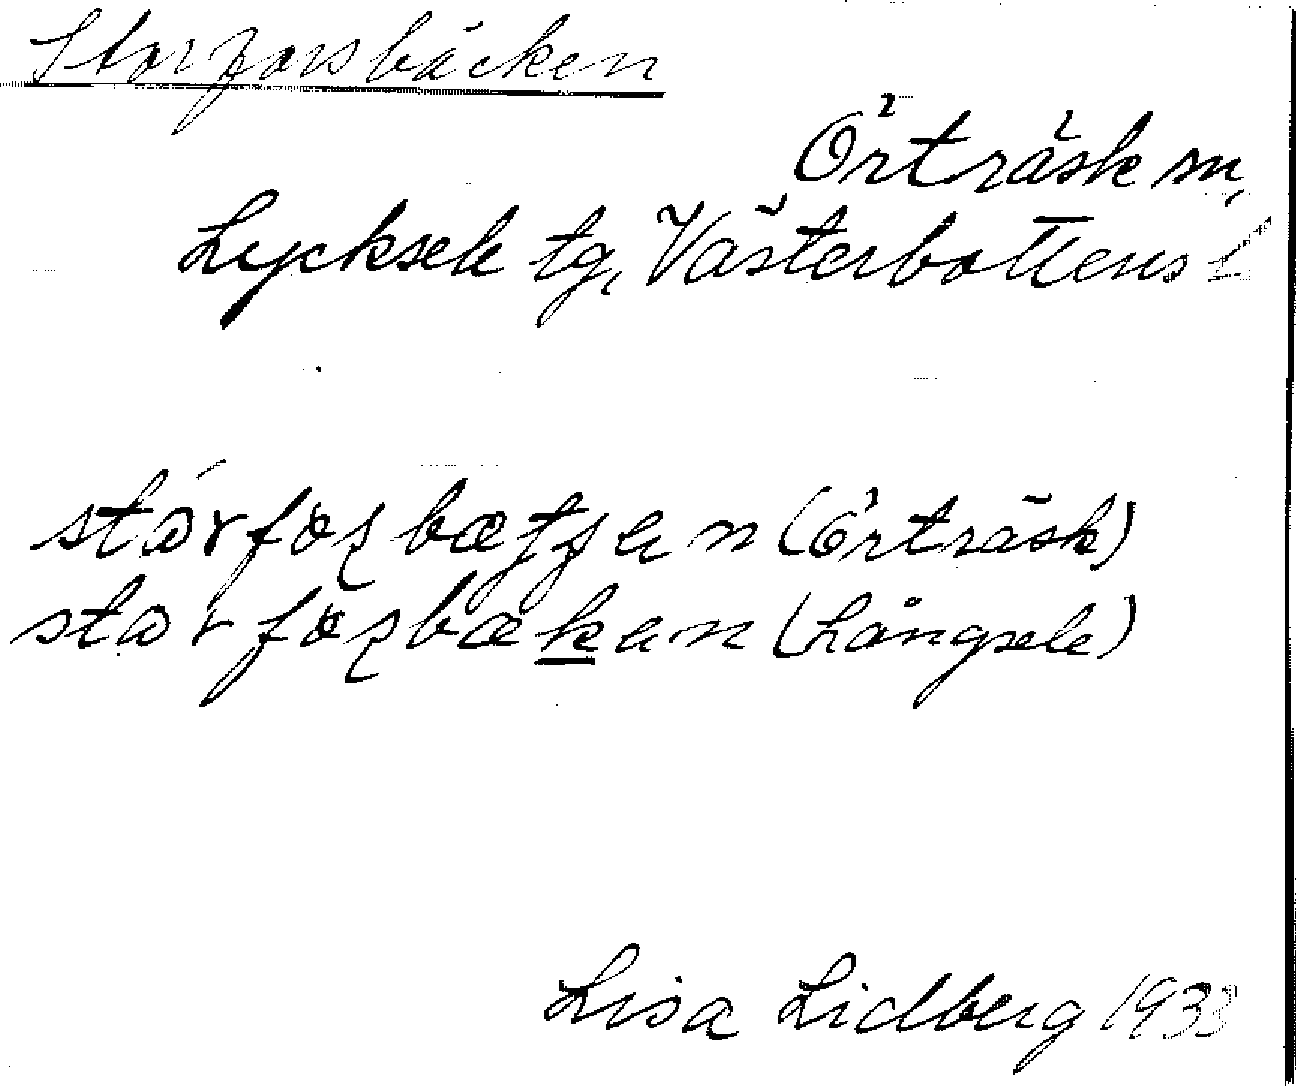 Storforsbäcken
Örträsk sn,
Lycksele tg, Västerbottens l
stɷrfoʂbætʃen (Örträsk)
stɷrfoʂbæken (Långsele)
Lisa Lidberg 1933